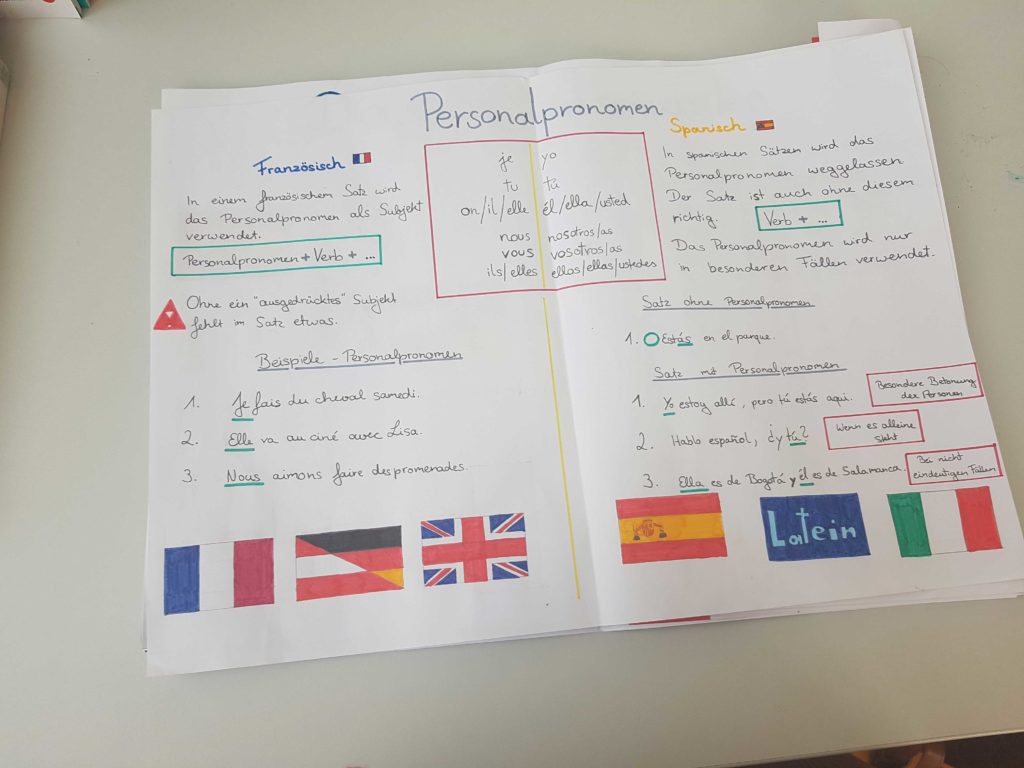 Personalpronomen
Französisch
In einem französischem Satz wird
das Personalpronomen als Subjekt
verwendet.
Personalpronomen + Verb + ...
Ohne ein "ausgedrücktes" Subjekt
fehlt im Satz etwas.
Beispiele - Personalpronomen
1. Je fais du cheval samedi.
2. Elle va au ciné avec Lisa.
3. Nous aimons faire des promenades.
je yo
tu tú
on/il/elle él/ella/usted
nous nosotros/as
vous vosotros/as
ils/elles ellos/ellas/ustedes
Spanisch
In spanischen Sätzen wird das
Personalpronomen weggelassen
Der Satz ist auch ohne diesem
richtig. Verb + ...
Das Personalpronomen wird nur
in besonderen Fällen verwendet.
Satz ohne Personalpronomen
1. Estás en el parque.
Satz mit Personalpronomen
1. Yo estoy allí, pero tú estás aqui.
Besondere Betonung
der Personen
2. Hablo español, ¿y tú?
Wenn es alleine
steht
3. Ella es de Bogotá y él es de Salamanca.
Bei nicht
eindeutigen Fällen
Latein